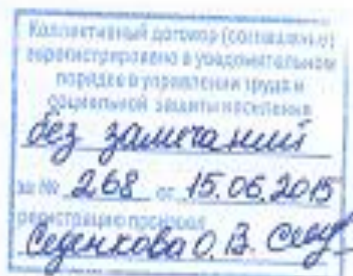 Коллективный договор (соглашение)
зарегистрировано в уведомительном
порядке в управлении труда и
социальной защиты населения
без замечаний
за № 268 от 15.06.2015
регистрацию произвел
О.В.